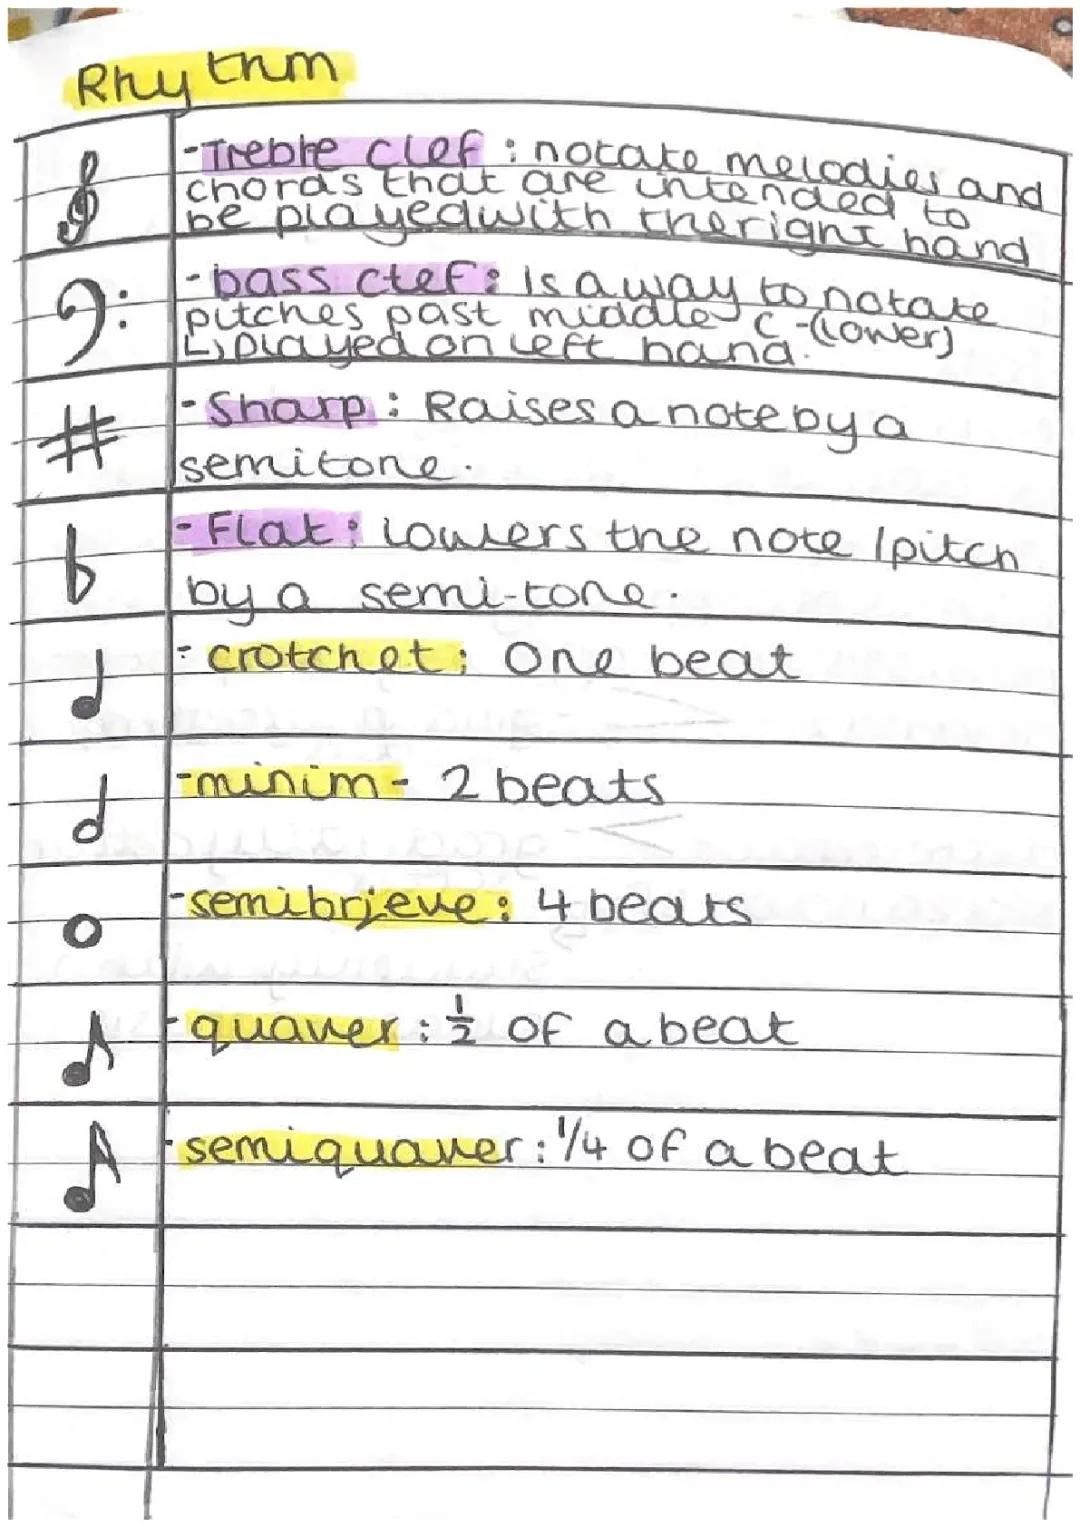 Rhythm
-Treble clef : notate melodies and
chords that are intended to
be played with the right hand
-bass clef: Is a way to notate
pitches past middle C -(lower)
↳ played on left hand.
- Sharp : Raises a note by a
semitone.
- Flat : lowers the note /pitch
by a semi-tone.
- crotchet: One beat
-minim- 2 beats
-semibrieve: 4 beats
-quaver : ½ of a beat
-semiquaver: 1/4 of a beat